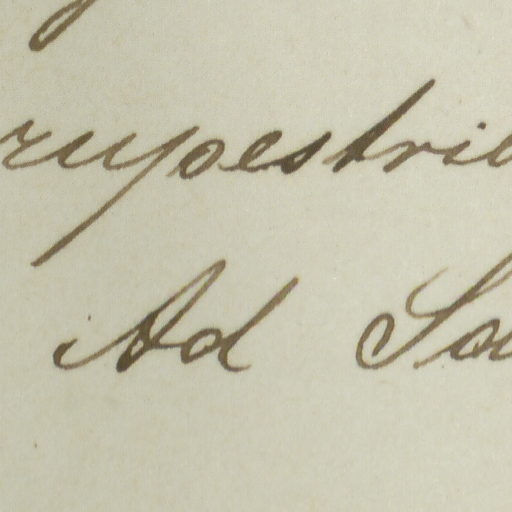 rupestri
Ad So